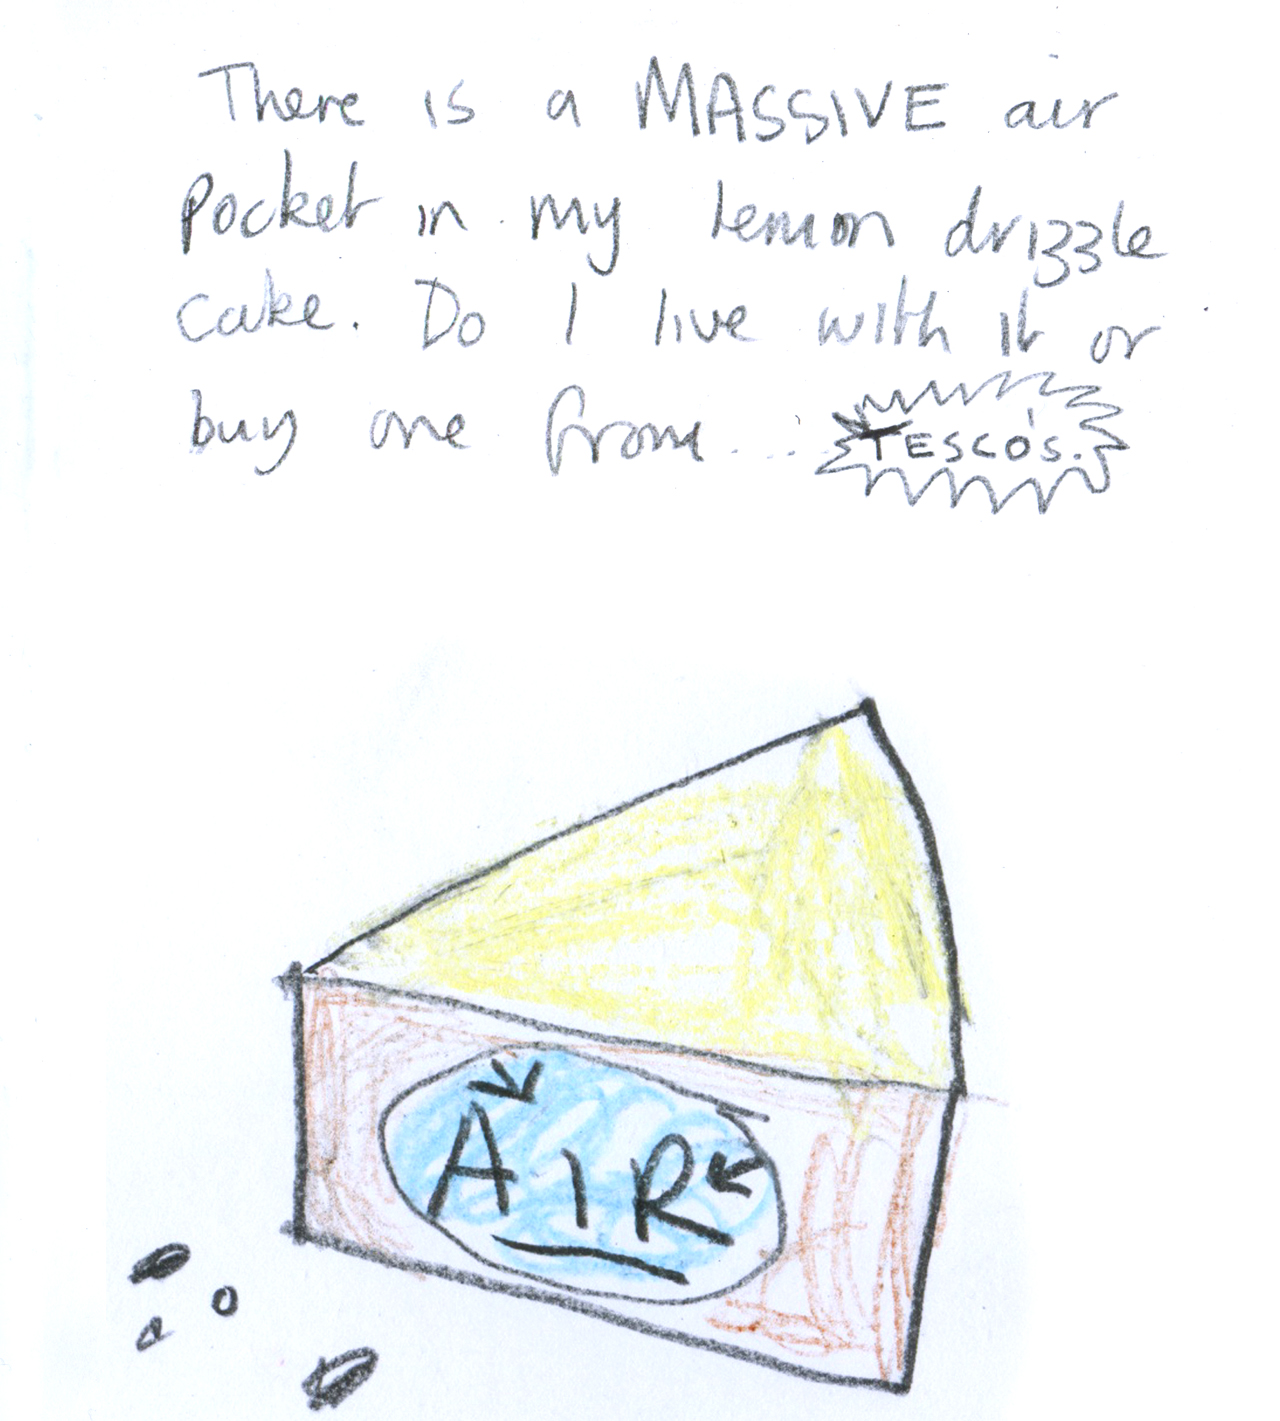 There is a MASSIVE air
Pocket in my lemon drizzle
cake. Do I live with it or
buy one from..... TESCO'S.
AIR